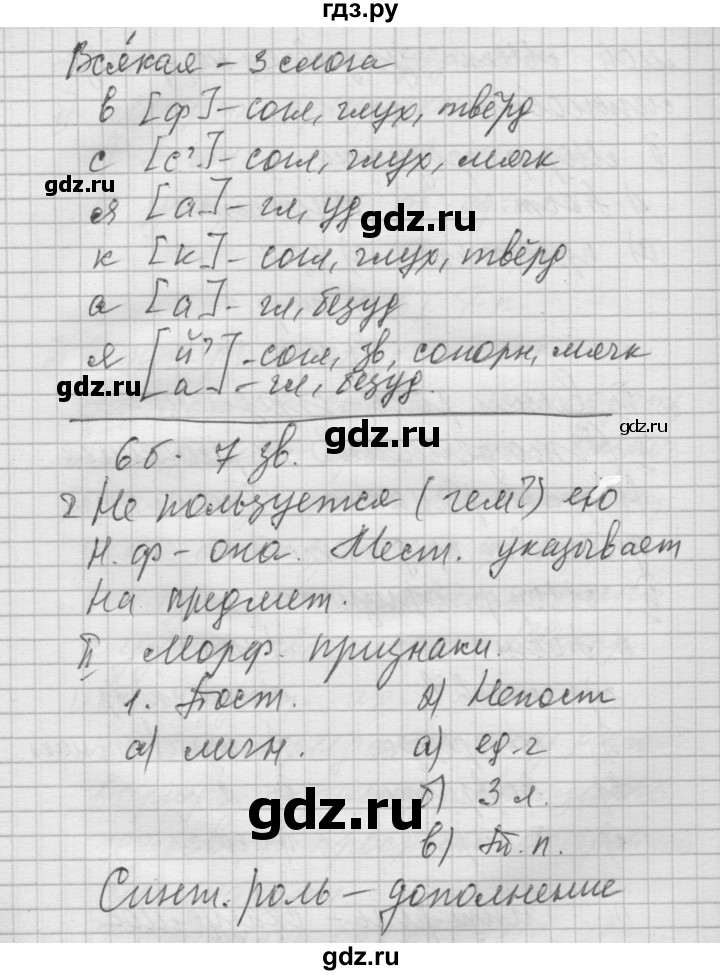 гдз.ру
Вся́кая – 3 слога
в [ф] – согл, глух, твёрд
с [с'] – согл, глух, мягк
gdz.ru
я [а] – гл, уд
gdz.ru
к [к] – согл, глух, твёрд
gdz.ru
а [а] – гл, безуд
я [й'] – согл, зв, сонорн, мягк
gdz.ru
[а] – гл, безуд.
gdz.ru
gdz.ru
6 б. 7 зв.
Не пользуется (чем?) ею
Н. ф – она. Мест. указывает
gdz.ru
на предмет.
II Морф. признаки.
1. Пост. 2) Непост
gdz.ru
а) личн. а) ед. ч
б) 3 л.
gdz.ru
в) Т. п.
Синт. роль – дополнение
gdz.ru
gdz.ru
гдз.ру